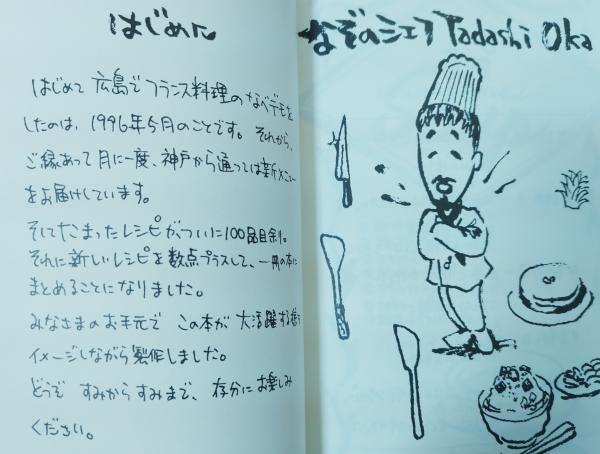 はじめに
はじめて 広島で フランス料理の なべデモを
したのは、1996年5月のことです。それから、
ご縁あって 月に一度、神戸から通っては新メニュー
をお届けしています。
そしてたまったレシピがついに100品目余り。
それに新しいレシピを数点プラスして、一冊の本に
まとめることになりました。
みなさまのお手元で この本が 大活躍する様を
イメージしながら製作しました。
どうぞ すみからすみまで、存分にお楽しみ
ください。
なぞのシェフ Tadashi Oka